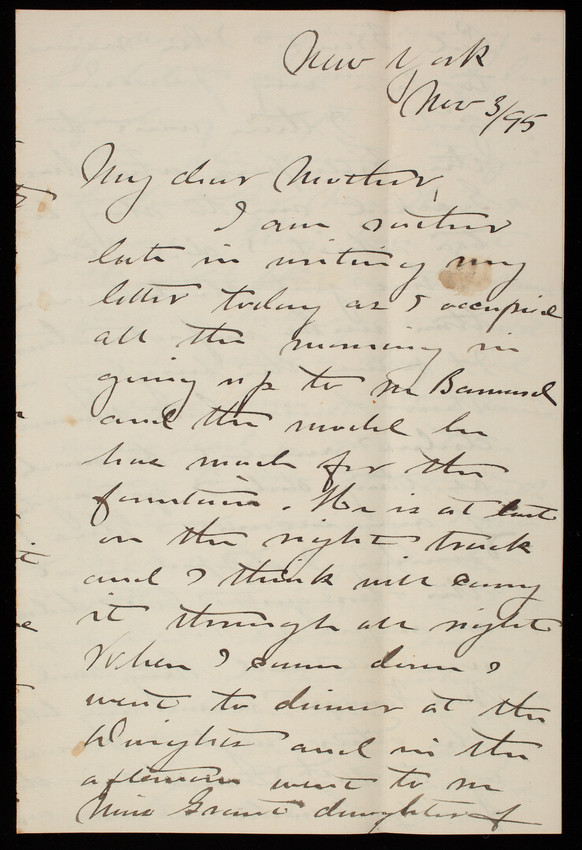 New York
Nov 3/95
My dear Mother,
I am rather
late in writing my
letter today as I occupied
all the morning in
going up to Mr Barnard
and the model he
has made for the
fountain. He is at last
on the right track
and I think will carry
it through all right
When I came down I
went to dinner at the
Wrights and in the
afternoon went to
Miss Grant daughter of